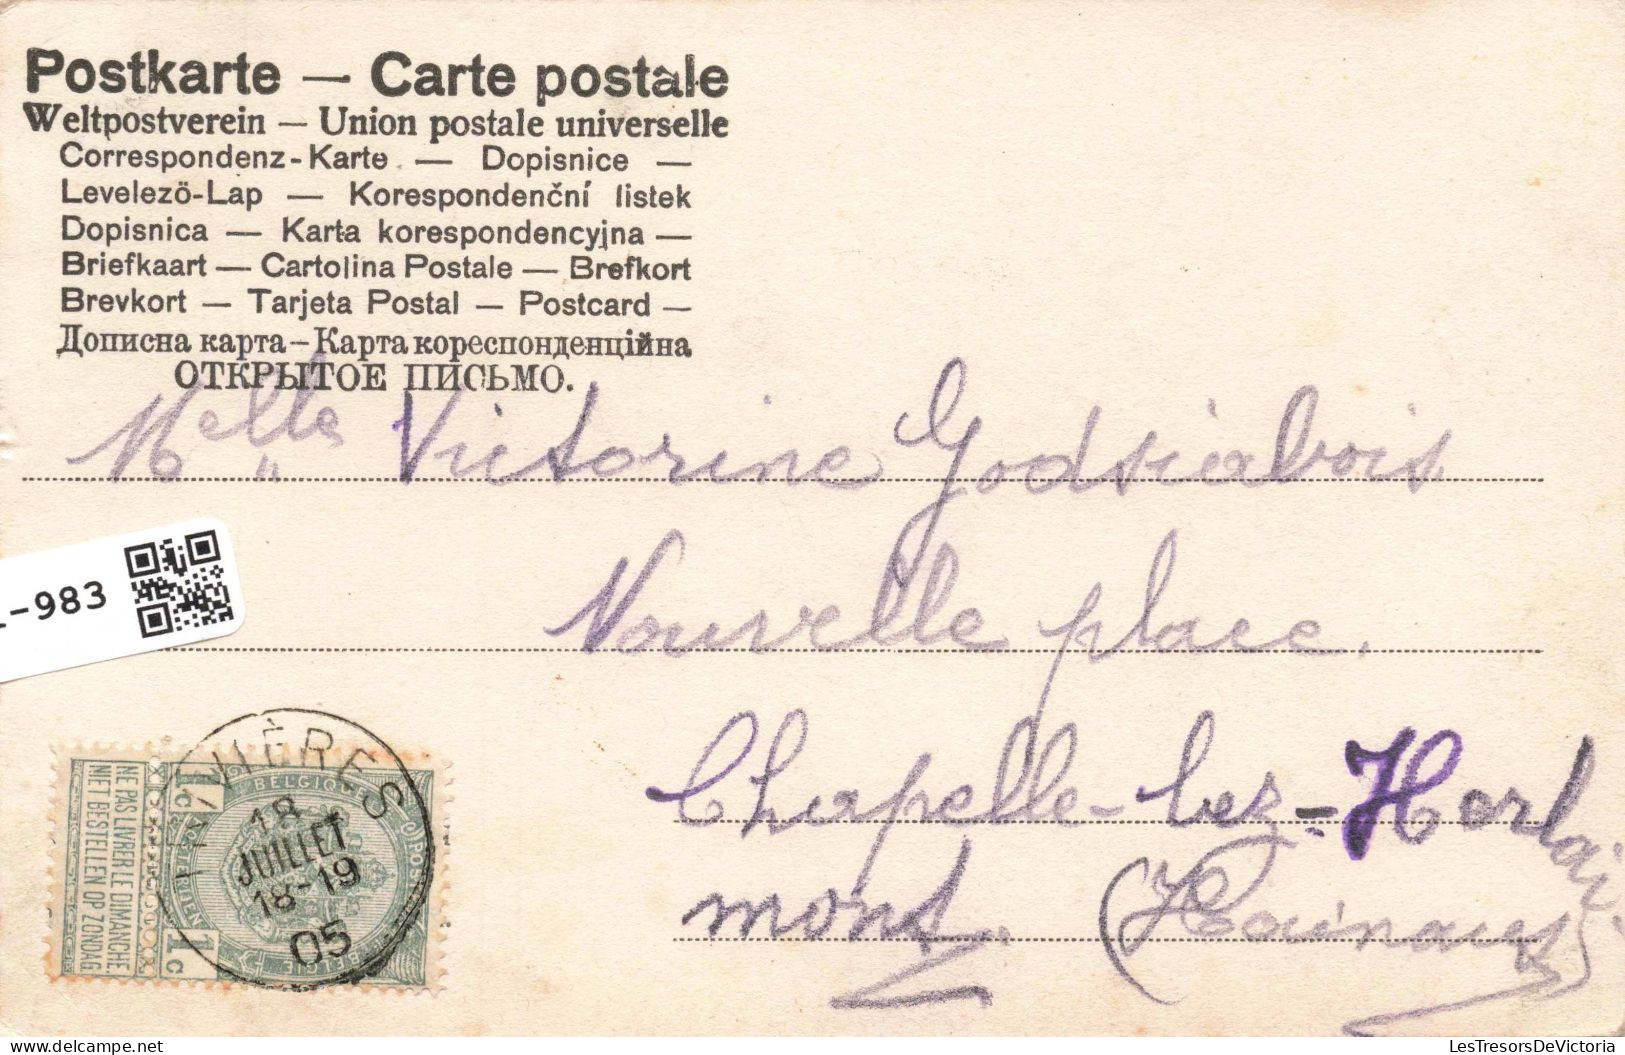 Postkarte — Carte postale
Weltpostverein — Union postale universelle
Correspondenz-Karte — Dopisnice —
Levelezö-Lap — Korespondenční listek
Dopisnica — Karta korespondencyjna —
Briefkaart — Cartolina Postale — Brefkort
Brevkort — Tarjeta Postal — Postcard —
Дописна карта – Карта кореспонденційна
ОТКРЫТОЕ ПИСЬМО.
Melle Victorine Godsiabois
Nouvelle place.
-983
Chapelle-lez-Herlai
mont. (Hainaut)
BELGIQUE
NE PAS LIVRER LE DIMANCHE
NIET BESTELLEN OP ZONDAG
1c
1c
18
JUILLET
18-19
05
LesTresorsDeVictoria
www.delcampe.net